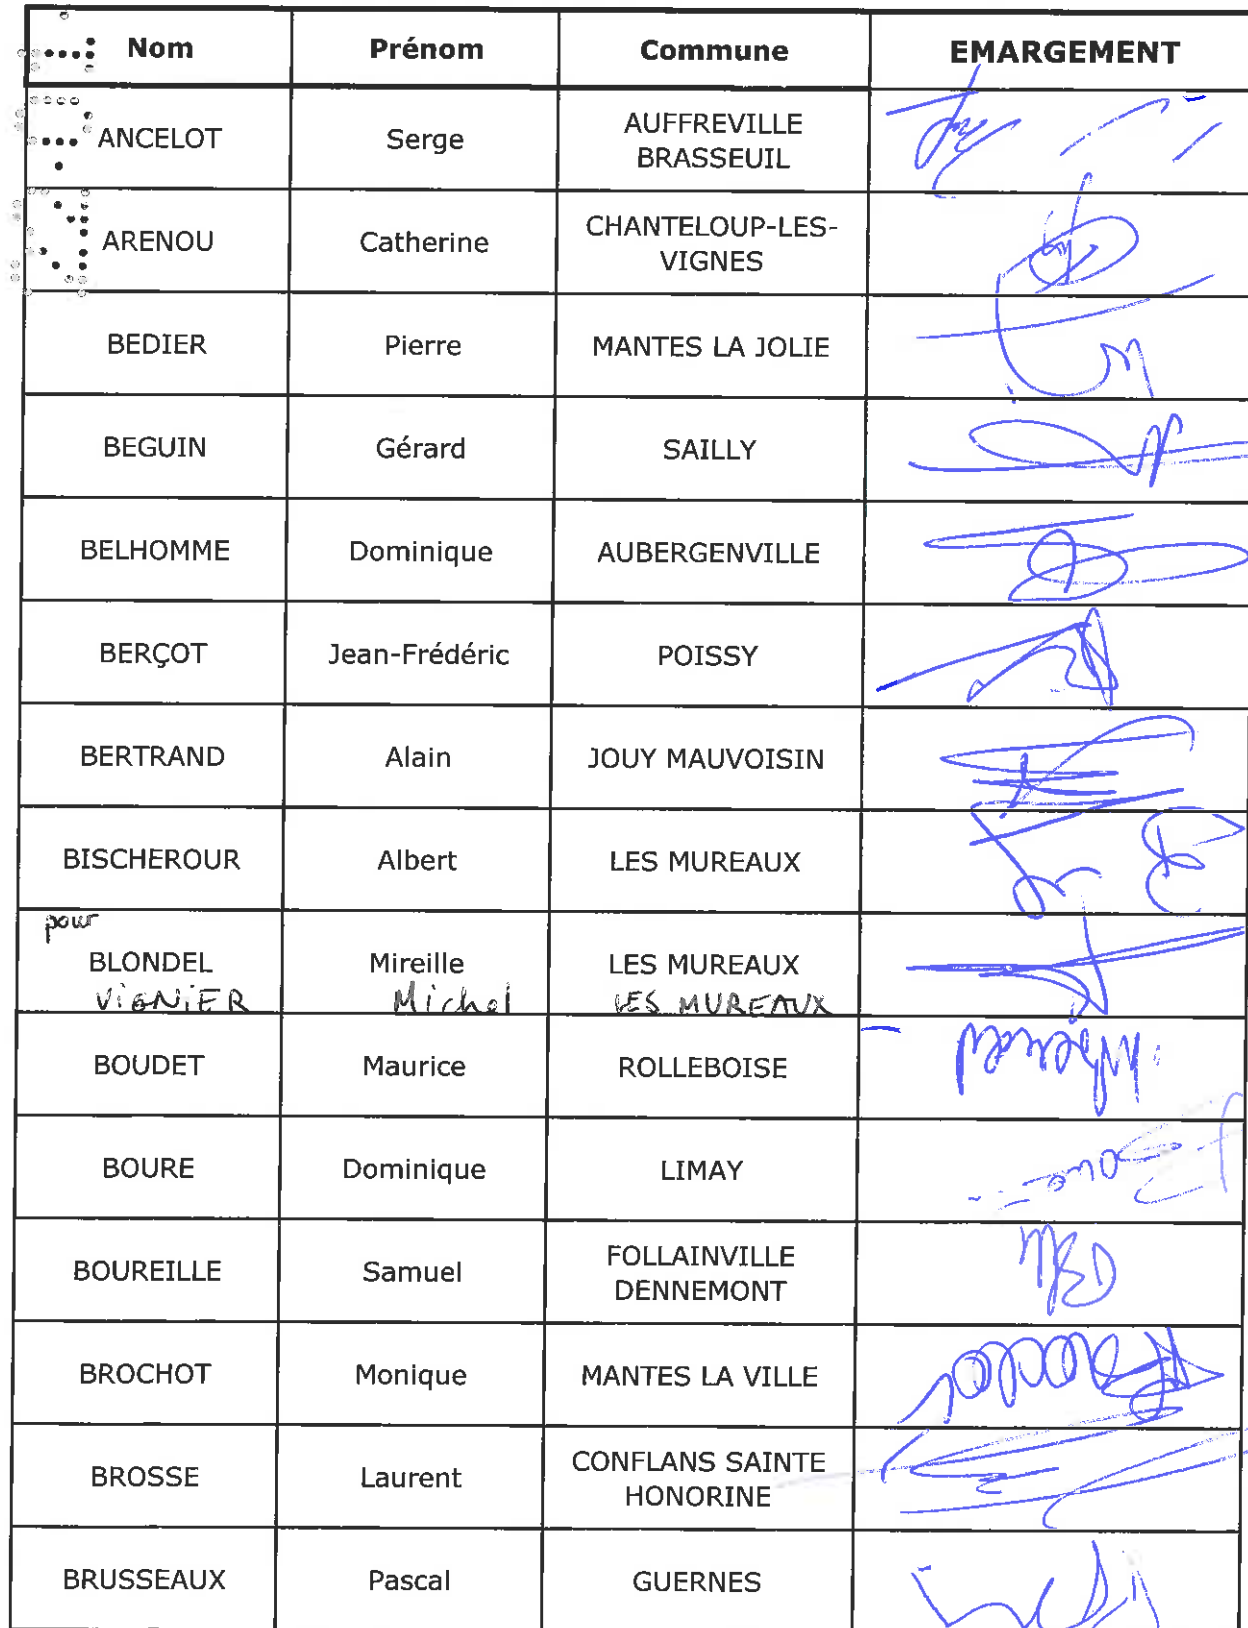 Nom Prénom Commune EMARGEMENT
ANCELOT Serge AUFFREVILLE
BRASSEUIL
ARENOU Catherine CHANTELOUP-LES-
VIGNES
BEDIER Pierre MANTES LA JOLIE
BEGUIN Gérard SAILLY
BELHOMME Dominique AUBERGENVILLE
BERÇOT Jean-Frédéric POISSY
BERTRAND Alain JOUY MAUVOISIN
BISCHEROUR Albert LES MUREAUX
pour
BLONDEL Mireille LES MUREAUX
ViGNiER Michel LES MUREAUX
BOUDET Maurice ROLLEBOISE
BOURE Dominique LIMAY
BOUREILLE Samuel FOLLAINVILLE
DENNEMONT
BROCHOT Monique MANTES LA VILLE
BROSSE Laurent CONFLANS SAINTE
HONORINE
BRUSSEAUX Pascal GUERNES